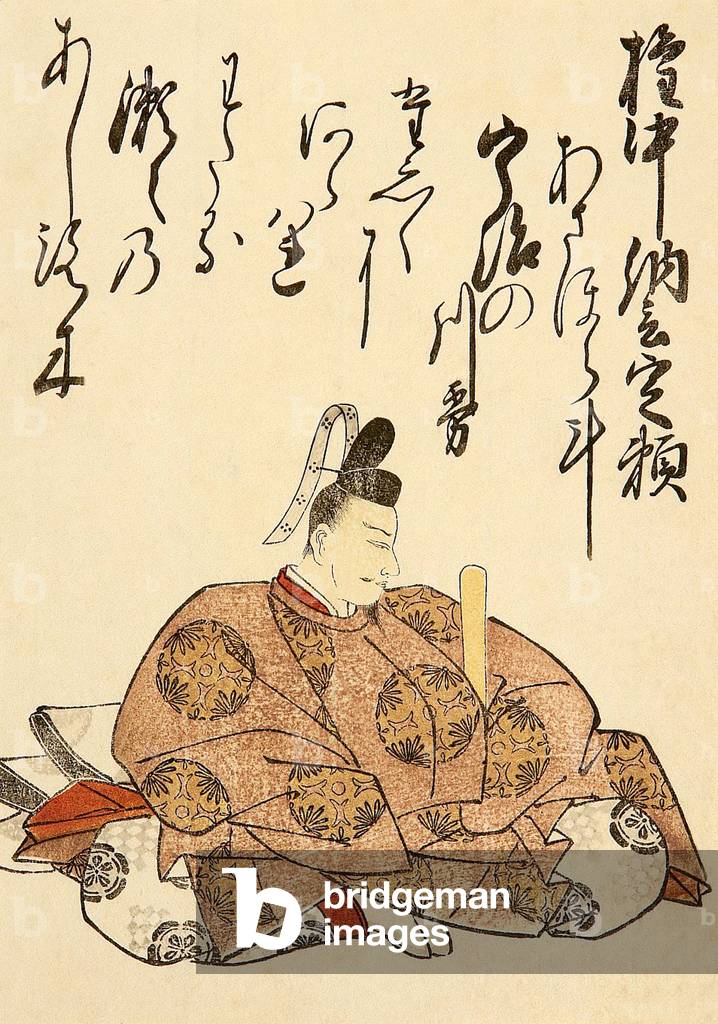 權中納言定頼
あさほらけ
宇治の
川霧
たえ〳〵に
あらはれ
わたる
瀬々の
あしろ木
b bridgeman images